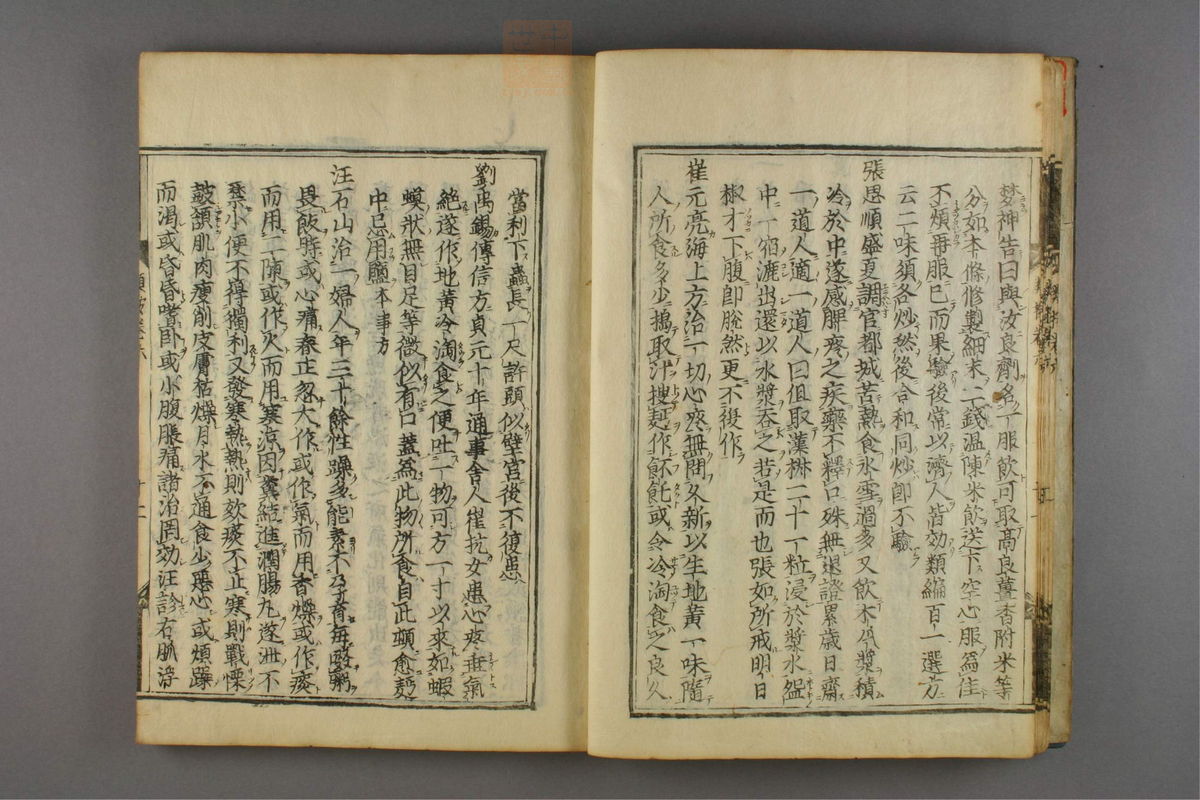 梦神告曰與汝良劑名一服飲可取髙良薑香附米等
分如本條修製細末二錢温陳米飲送下空心服爲佳
不煩再服已而果驗後常以濟人皆効類編百一選方
云二味須各炒然後合和同炒卽不驗
張思順盛夏調官都城苦熱食氷雪過多又飲木瓜漿積
冷於中遂感脾疼之疾藥不釋口殊無退證累歳日齋
一道人適一道人曰但取漢椒二十一粒浸於漿水盌
中一宿漉出還以水漿吞之若是而也張如所戒明日
椒才下腹卽脫然更不復作
崔元亮海上方治一切心疼無問久新以生地黃一味隨
人所食多少搗取汁搜麪作飥或令冷淘食之良久
當利下蟲長一尺許頭似壁宮後不復患
劉禹錫傳信方貞元十年通事舍人崔抗女患心疼垂氣
絶遂作地黃冷淘食之便吐一物可方一寸以來如蝦
蟆狀無目足等微似有口蓋爲此物所食自此頓愈麪
中忌用鹽本事方
汪石山治一婦人年三十餘性躁多能素不孕育每
畏飯時或心痛春正忽大作或作氣而用香燥或作痰
而用二陳或作火而用寒凉因糞結進潤腸丸遂泄不
禁小便不得獨利又發寒熱熱則欬痰不止寒則戰慄
皷頷肌肉瘦削皮膚枯燥月水不通食少惡心或煩躁
而渴或昏昏嗜卧或小腹脹痛諸治罔効汪診右脈浮